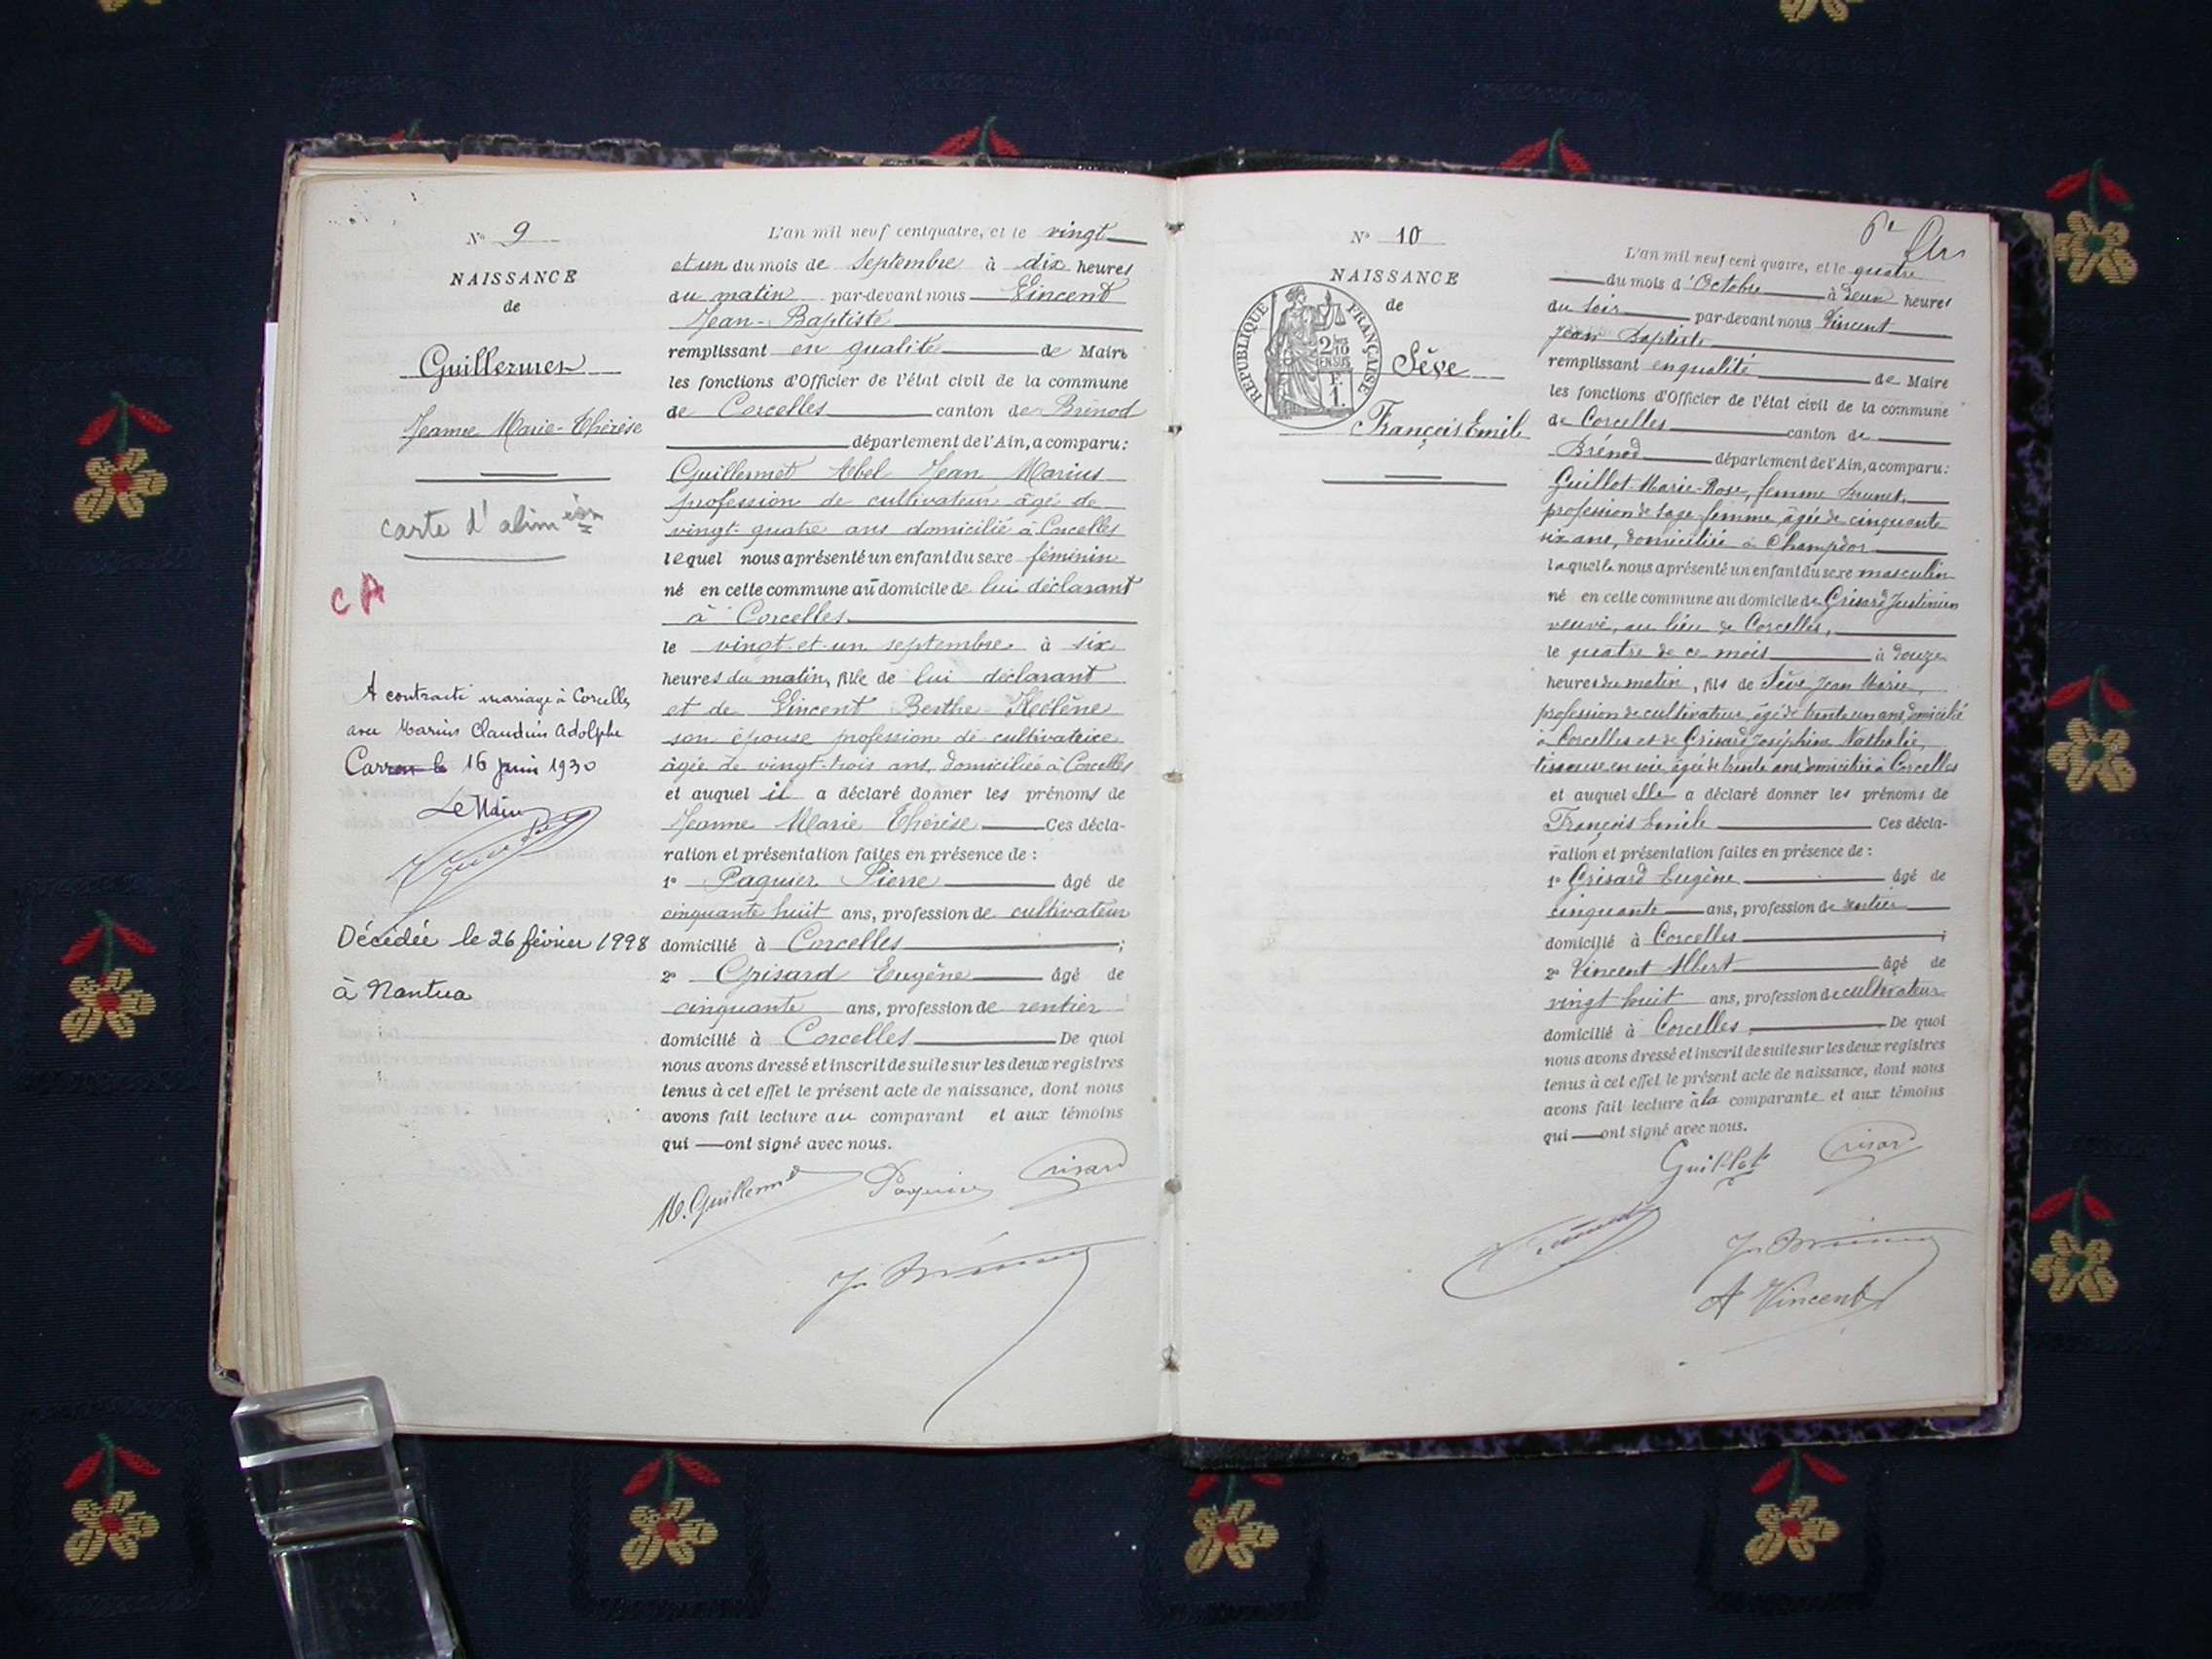 N° 9
NAISSANCE
de
Guillermet
Jeanne Marie-Thérèse
carte d'alim
CA
A contracté mariage à Corcelles
avec Marius Claudius Adolphe
Carron le 16 juin 1930
Le Maire
Décédée le 26 février 1998
à Nantua
L'an mil neuf cent quatre, et le vingt
et un du mois de Septembre à dix heures
du matin par-devant nous Vincent
Jean-Baptiste
remplissant en qualité de Maire
les fonctions d'Officier de l'état civil de la commune
de Corcelles canton de Brénod
département de l'Ain, a comparu:
Guillermet Abel Jean Marius
profession de cultivateur âgé de
vingt quatre ans domicilié à Corcelles
lequel nous a présenté un enfant du sexe féminin
né en cette commune au domicile de lui déclarant
à Corcelles
le vingt et un septembre à six
heures du matin, fille de lui déclarant
et de Vincent Berthe Hélène
son épouse profession de cultivatrice
âgée de vingt-trois ans, domiciliée à Corcelles
et auquel il a déclaré donner les prénoms de
Jeanne Marie Thérèse Ces décla-
ration et présentation faites en présence de :
1° Paquier Pierre âgé de
cinquante huit ans, profession de cultivateur
domicilié à Corcelles ;
2° Grisard Eugène âgé de
cinquante ans, profession de rentier
domicilié à Corcelles De quoi
nous avons dressé et inscrit de suite sur les deux registres
tenus à cet effet le présent acte de naissance, dont nous
avons fait lecture au comparant et aux témoins
qui ont signé avec nous.
M. Guillermet Paquier Grisard
N° 10
NAISSANCE
de
REPUBLIQUE FRANÇAISE
2/10
EN SUS
Sève
François Emile
L'an mil neuf cent quatre, et le quatre
du mois d'Octobre à deux heures
du soir par-devant nous Vincent
Jean Baptiste
remplissant en qualité de Maire
les fonctions d'Officier de l'état civil de la commune
de Corcelles canton de
Brénod département de l'Ain, a comparu:
Guillot Marie-Rose, femme Brunet,
profession de sage-femme, âgée de cinquante
six ans, domiciliée à Champdor
laquelle nous a présenté un enfant du sexe masculin
né en cette commune au domicile de Grisard Justinien
veuve, au lieu de Corcelles,
le quatre de ce mois à douze
heures du matin, fils de Sève Jean Marie,
profession de cultivateur, âgé de trente un ans, domicilié
à Corcelles et de Grisard Joséphine Nathalie,
tisseuse en soie, âgée de trente ans, domiciliée à Corcelles
et auquel elle a déclaré donner les prénoms de
François Emile Ces décla-
ration et présentation faites en présence de :
1° Grisard Eugène âgé de
cinquante ans, profession de rentier
domicilié à Corcelles ;
2° Vincent Albert âgé de
vingt huit ans, profession de cultivateur
domicilié à Corcelles, De quoi
nous avons dressé et inscrit de suite sur les deux registres
tenus à cet effet le présent acte de naissance, dont nous
avons fait lecture à la comparante et aux témoins
qui ont signé avec nous.
Guillot Grisard
A Vincent